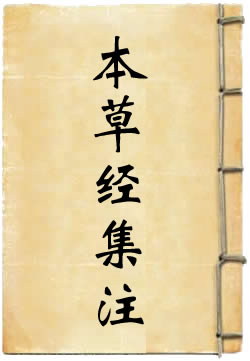 本草经集注